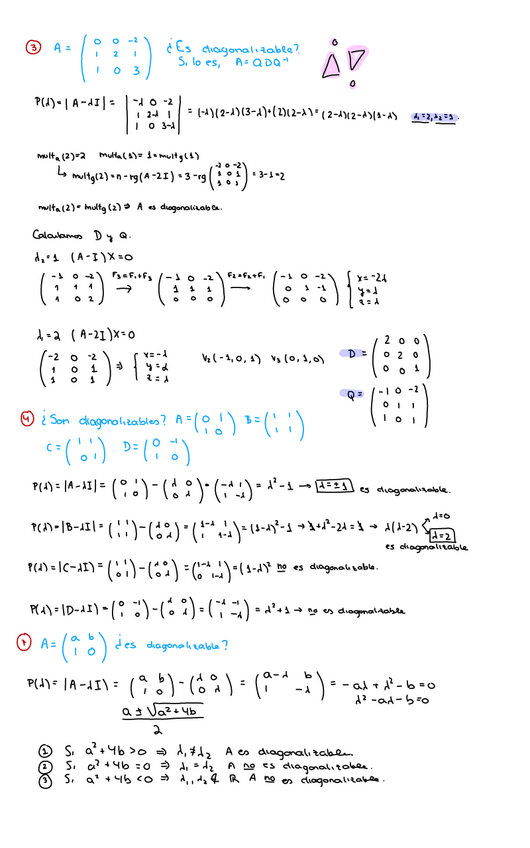 ③ A = ( 0 0 -2 / 1 2 1 / 1 0 3 ) ¿Es diagonalizable? Si lo es, A = QDQ⁻¹
P(λ) = |A-λI| = | -λ 0 -2 / 1 2-λ 1 / 1 0 3-λ | = (-λ)(2-λ)(3-λ)+(2)(2-λ) = (2-λ)(2-λ)(1-λ) λ₁=2, λ₂=1
multa(2)=2 multa(1)=1=multg(1)
↳ multg(2)=n-rg(A-2I) = 3-rg( -2 0 -2 / 1 0 1 / 1 0 1 ) = 3-1=2
multa(2)=multg(2) ⇒ A es diagonalizable.
Calculamos D y Q.
λ₂=1 (A-I)X=0
( -1 0 -2 / 1 1 1 / 1 0 2 ) F₃=F₁+F₃ → ( -1 0 -2 / 1 1 1 / 0 0 0 ) F₂=F₂+F₁ → ( -1 0 -2 / 0 1 -1 / 0 0 0 ) { x=-2λ / y=λ / z=λ
λ=2 (A-2I)X=0
( -2 0 -2 / 1 0 1 / 1 0 1 ) ⇒ { x=-λ / y=α / z=λ V₂(-1,0,1) V₃(0,1,0) D = ( 2 0 0 / 0 2 0 / 0 0 1 )
Q = ( -1 0 -2 / 0 1 1 / 1 0 1 )
④ ¿Son diagonalizables? A = ( 0 1 / 1 0 ) B = ( 1 1 / 1 1 )
C = ( 1 1 / 0 1 ) D = ( 0 -1 / 1 0 )
P(λ) = |A-λI| = ( 0 1 / 1 0 ) - ( λ 0 / 0 λ ) = ( -λ 1 / 1 -λ ) = λ²-1 → λ=±1 es diagonalizable.
P(λ) = |B-λI| = ( 1 1 / 1 1 ) - ( λ 0 / 0 λ ) = ( 1-λ 1 / 1 1-λ ) = (1-λ)²-1 → 1+λ²-2λ=1 → λ(λ-2) λ=0 λ=2
es diagonalizable
P(λ) = |C-λI| = ( 1 1 / 0 1 ) - ( λ 0 / 0 λ ) = ( 1-λ 1 / 0 1-λ ) = (1-λ)² no es diagonalizable.
P(λ) = |D-λI| = ( 0 -1 / 1 0 ) - ( λ 0 / 0 λ ) = ( -λ -1 / 1 -λ ) = λ²+1 → no es diagonalizable
⑦ A = ( a b / 1 0 ) ¿es diagonalizable?
P(λ) = |A-λI| = ( a b / 1 0 ) - ( λ 0 / 0 λ ) = ( a-λ b / 1 -λ ) = -aλ+λ²-b=0
λ²-aλ-b=0
a±√a²+4b / 2
① Si a²+4b>0 ⇒ λ₁≠λ₂ A es diagonalizable.
② Si a²+4b=0 ⇒ λ₁=λ₂ A no es diagonalizable.
③ Si a²+4b<0 ⇒ λ₁,λ₂∉ℝ A no es diagonalizable.